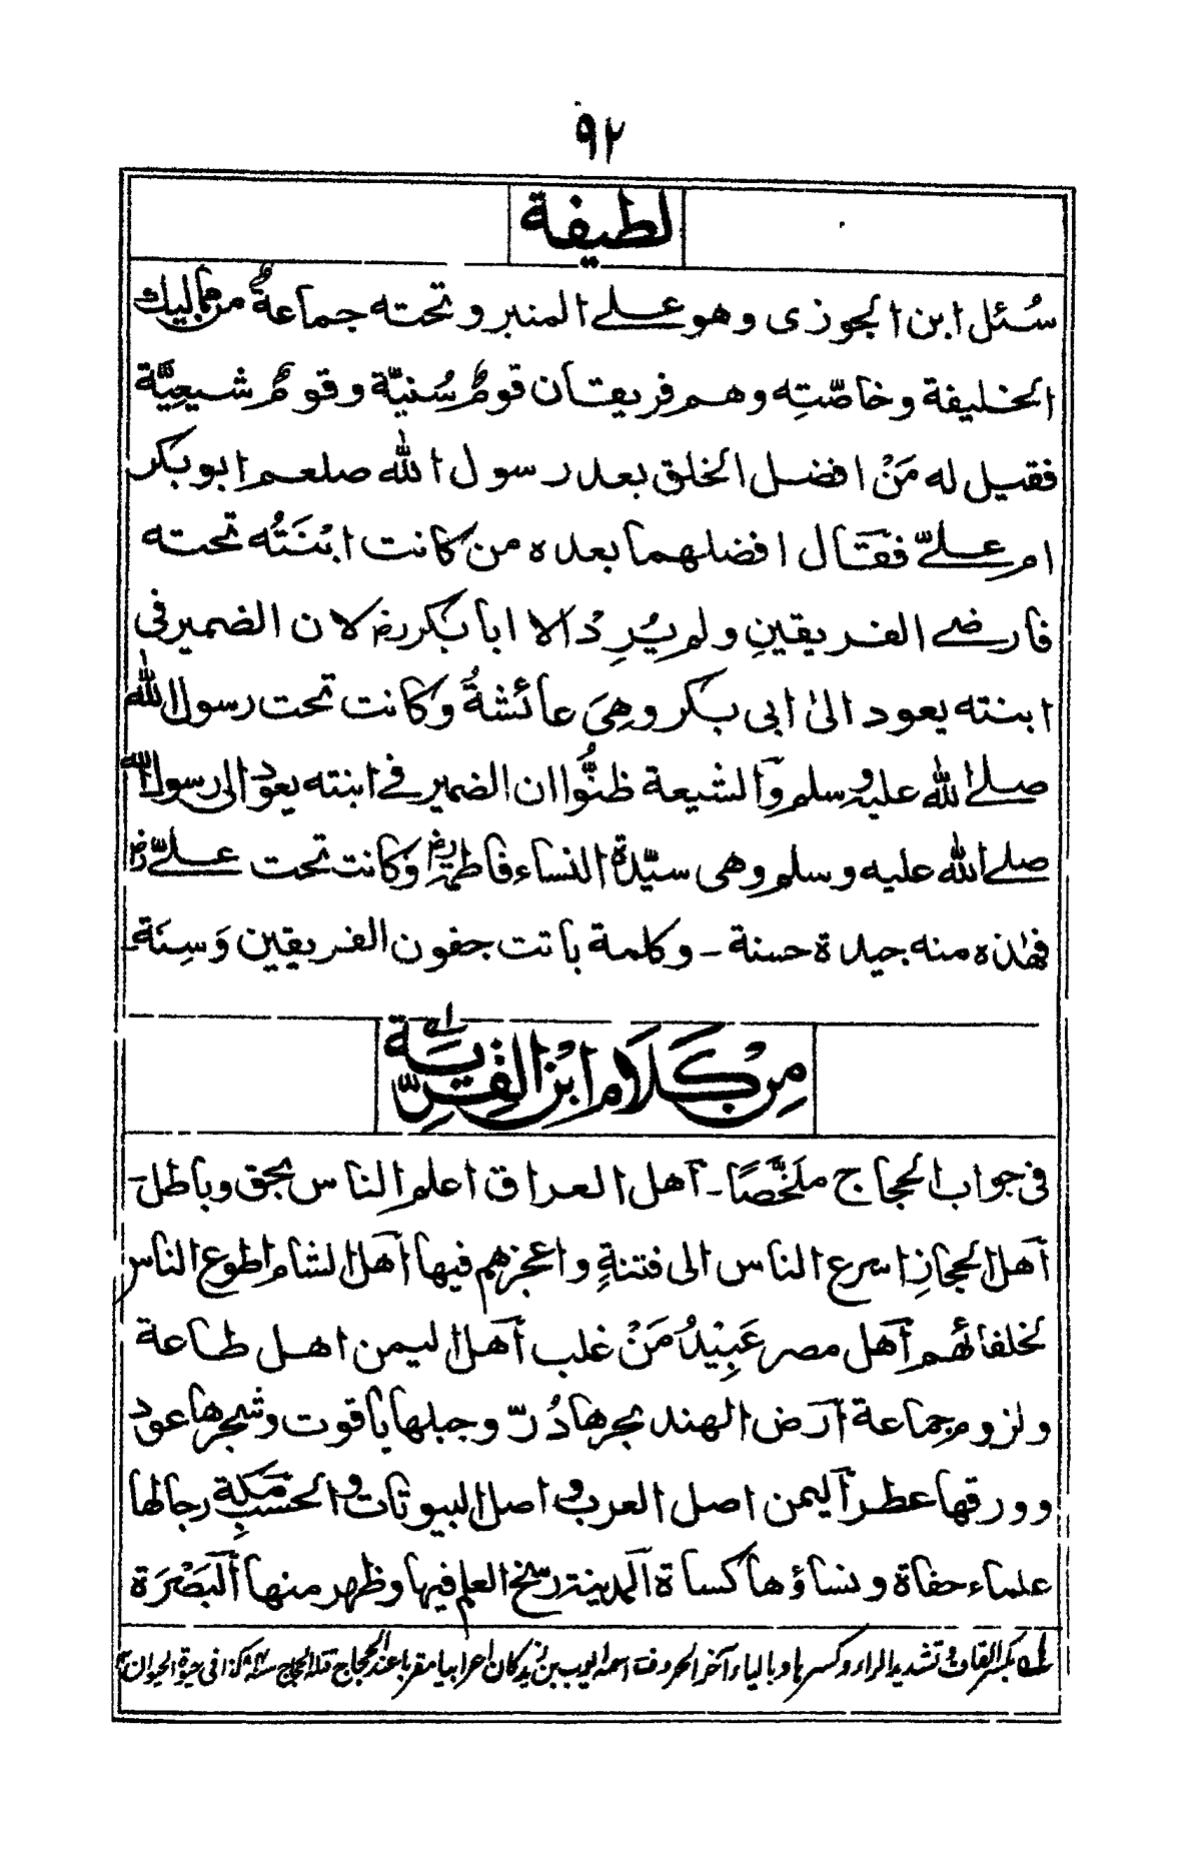 ٩٢
لطيفة
سُئل ابن الجوزى وهو علے المنبر وتحته جماعةٌ من مماليك
الخليفة وخاصّتِه وهم فريقان قومٌ سُنيّة وقومٌ شيعيّة
فقيل له مَنْ افضل الخلق بعد رسول الله صلعم ابوبكر
ام علیّ فقال افضلهما بعده من كانت ابْنَتُه تحته
فارضے الفريقينِ ولم يُرِدْ الا ابا بكر رض لان الضمير فى
ابنته يعود الىٰ ابى بكر وهِىَ عائشةُ وكانت تحت رسول الله
صلے الله عليه وسلم والشيعة ظنُّوا ان الضمير فے ابنته يعود الى رسول الله
صلے الله عليه وسلم وهى سيّدة النساء فاطمة رض وكانت تحت علیّ رض
فهٰذه منه جيدة حسنة ۔ وكلمة باتت جفون الفريقين وَسِنَة ۔
مِنْ كَلَام ابْن القِرِّيَّة لـه
فى جواب الحجاج ملَخَّصًا ۔ آهل العراق اعلم الناس بحق وباطل ۔
آهل الحجازِ اسرع الناس الى فتنةٍ واعجزهم فيها آهل الشام اطوع الناس
لخلفائهم آهل مصر عَبِيْدُ مَنْ غلب آهل اليمن اهل طاعة
ولزوم جماعة آرض الهند بحرها دُرّ وجبلها ياقوت وشجرها عود
وورقها عطر آليمن اصل العرب و اصل البيوتات والحسب مكة رجالها
علماء حفاة ونساؤها كساة آلمدينة رسخ العلم فيها وظهر منها آلبَصْرَة
لـه بكسر القاف وتشديد الراء وكسرها وبالياء آخر الحروف اسمه ايوب بن زيد كان اعرابيا مقربا عند الحجاج قتله الحجاج سنة ٨٤ كذا فى حيوة الحيوان